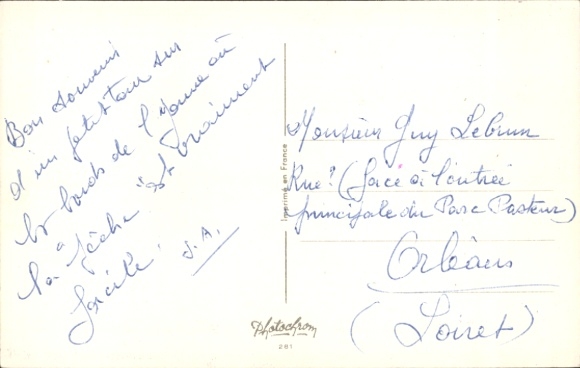 Bon souvenir
d'un petit tour sur
les bords de l'Yonne où
la "pêche" est vraiment
facile!
J.A.
Imprimé en France
Monsieur Guy Lebrun
Rue? (face à l'entrée
principale du Parc Pasteur)
Orléans
(Loiret)
Photochrom
281